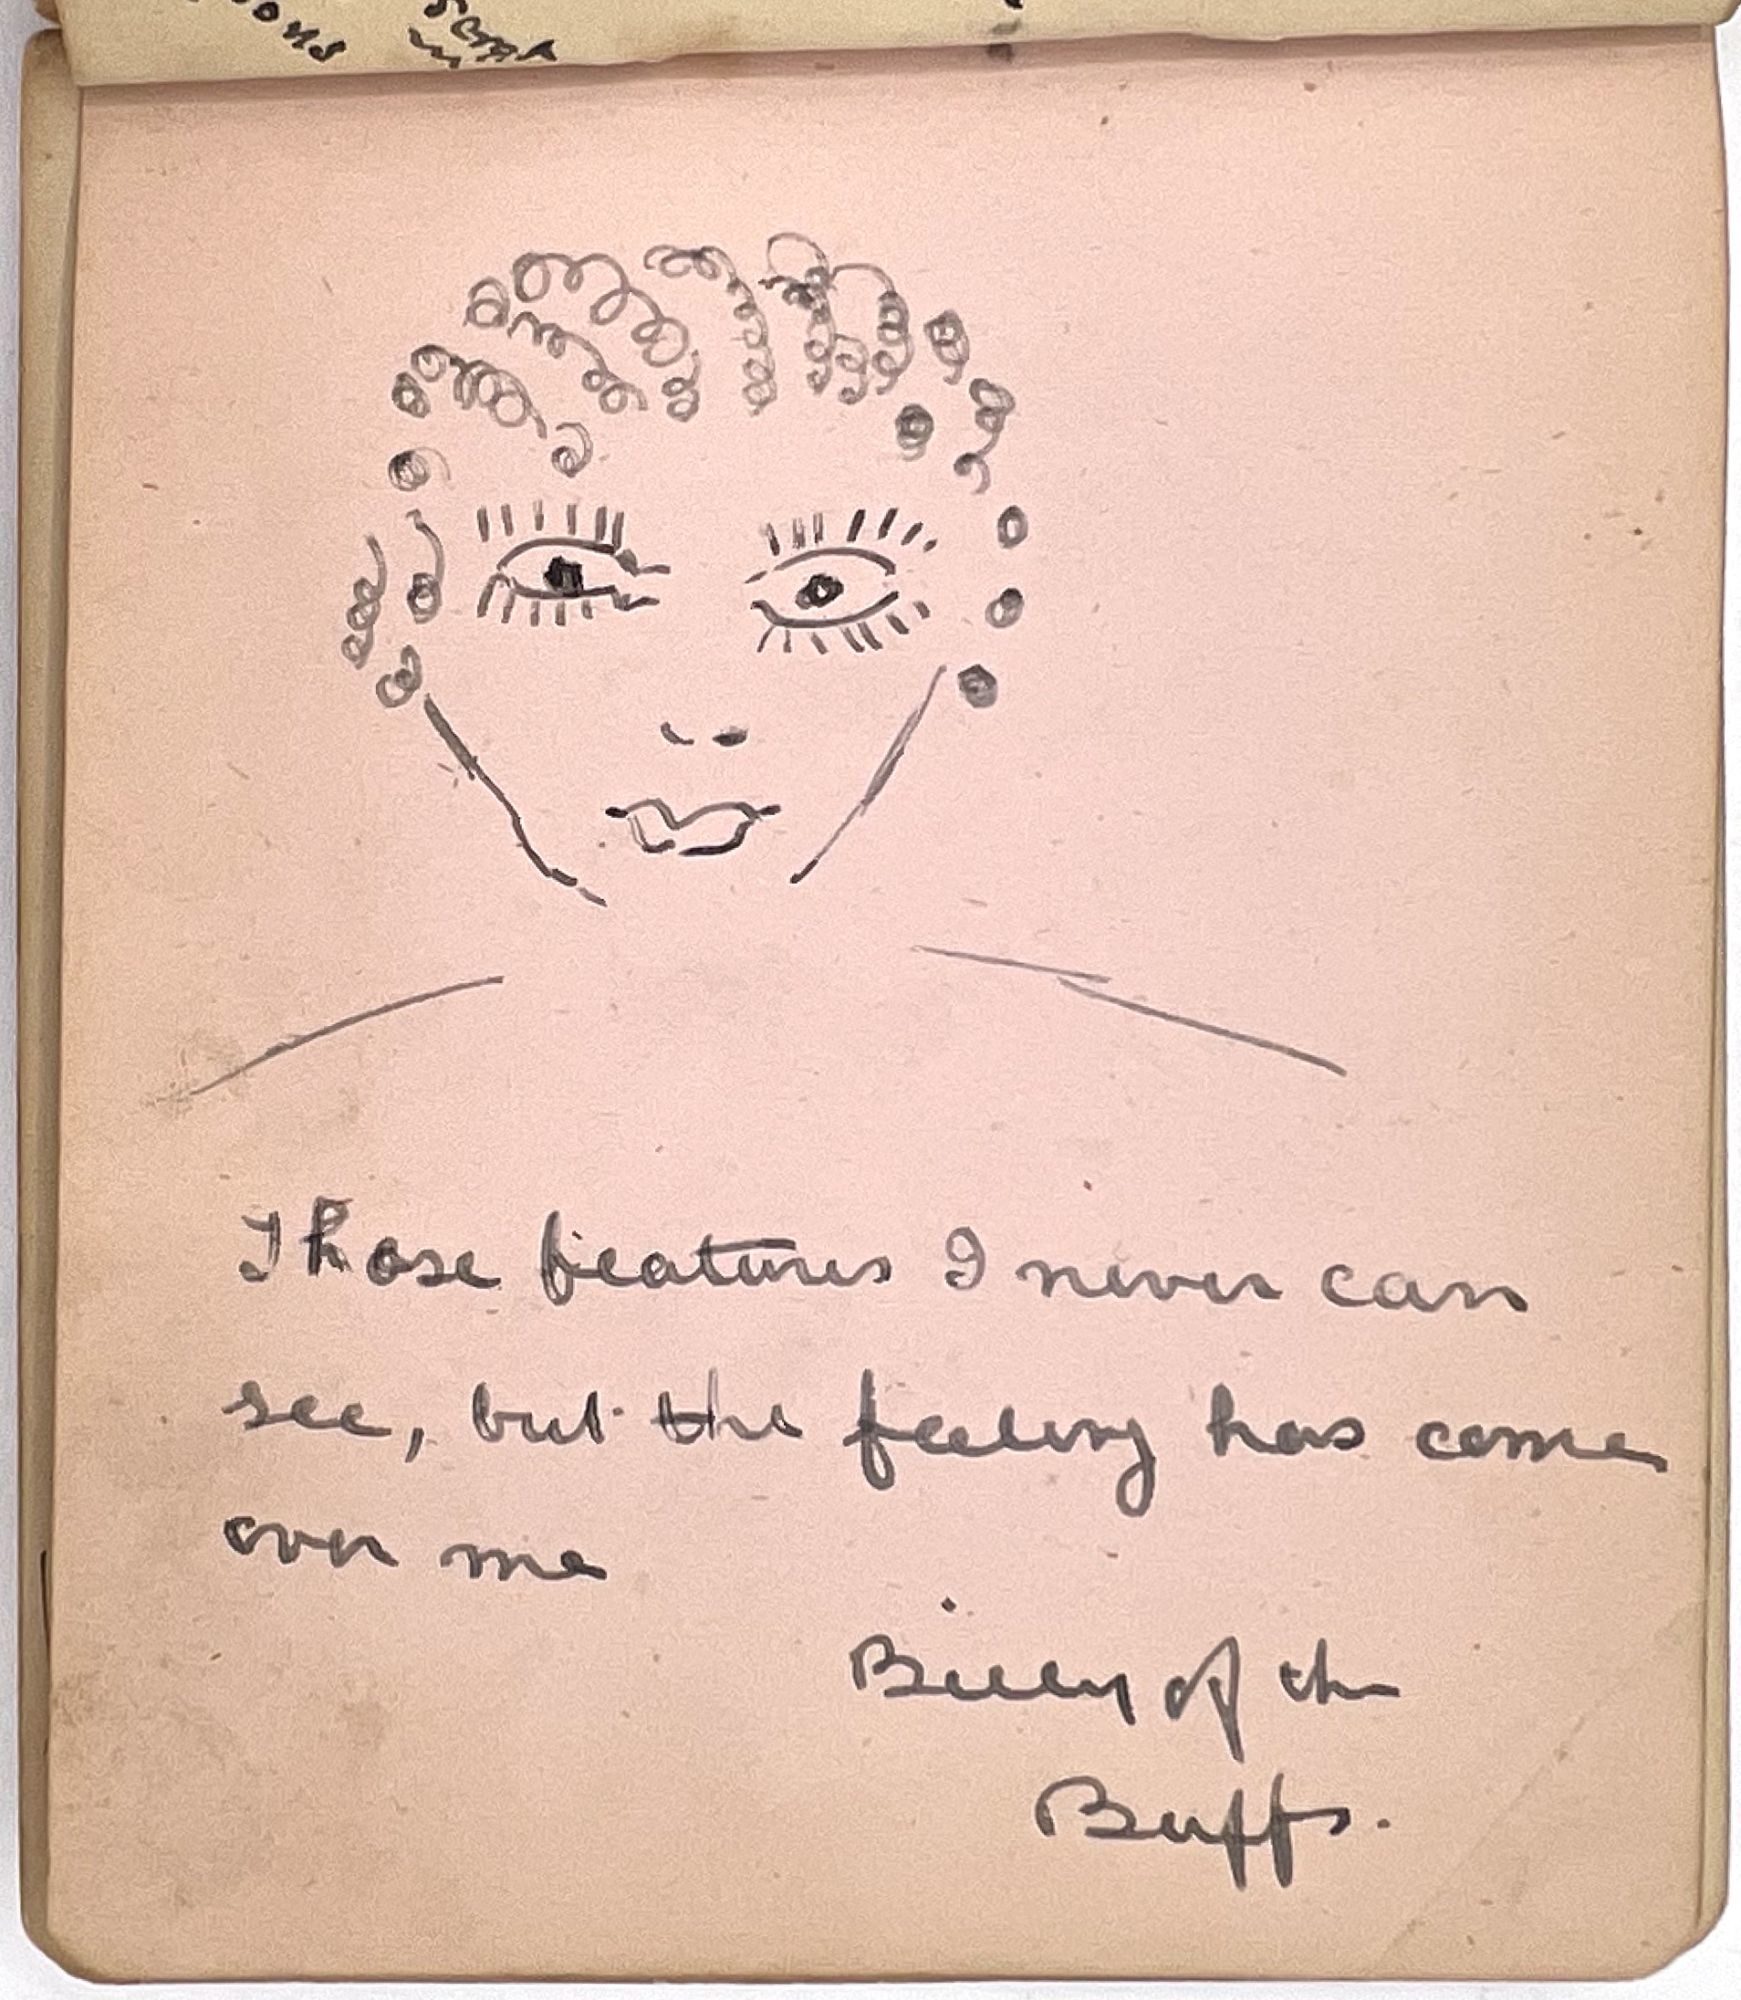 Those features I never can
see, but the feeling has come
over me
Billy of the
Buffs.